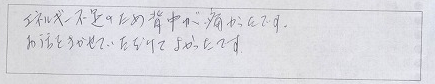 エネルギー不足のため背中が痛かったです。
お話をきかせていただけてよかったです